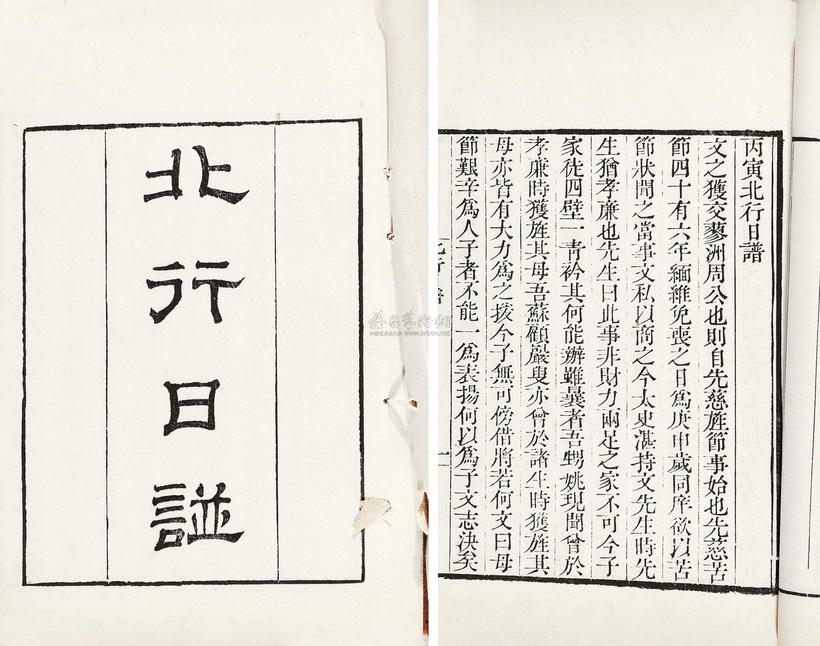 北行日譜
丙寅北行日譜
文之獲交蓼洲周公也則自先慈旌節事始也先慈苦
節四十有六年緬維免喪之日爲庚申歲同庠欲以苦
節狀聞之當事文私以商之今太史湛持文先生時先
生猶孝廉也先生曰此事非財力兩足之家不可今子
家徒四壁一青衿其何能辦雖曩者吾甥姚現聞曾於
孝廉時獲旌其母吾蘇顧巖叟亦曾於諸生時獲旌其
母亦皆有大力爲之援今子無可傍借將若何文曰母
節艱辛爲人子者不能一爲表揚何以爲子文志決矣